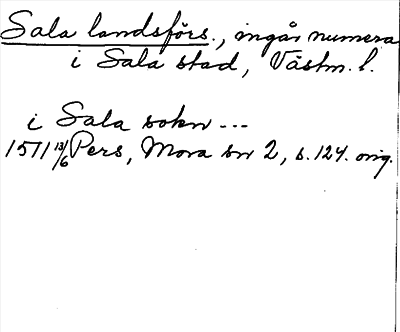 Sala landsförs., ingår numera
i Sala stad, Västm. l.
i Sala sokn ---
1571 13/6 Pers, Mora sn 2, s. 124. orig.